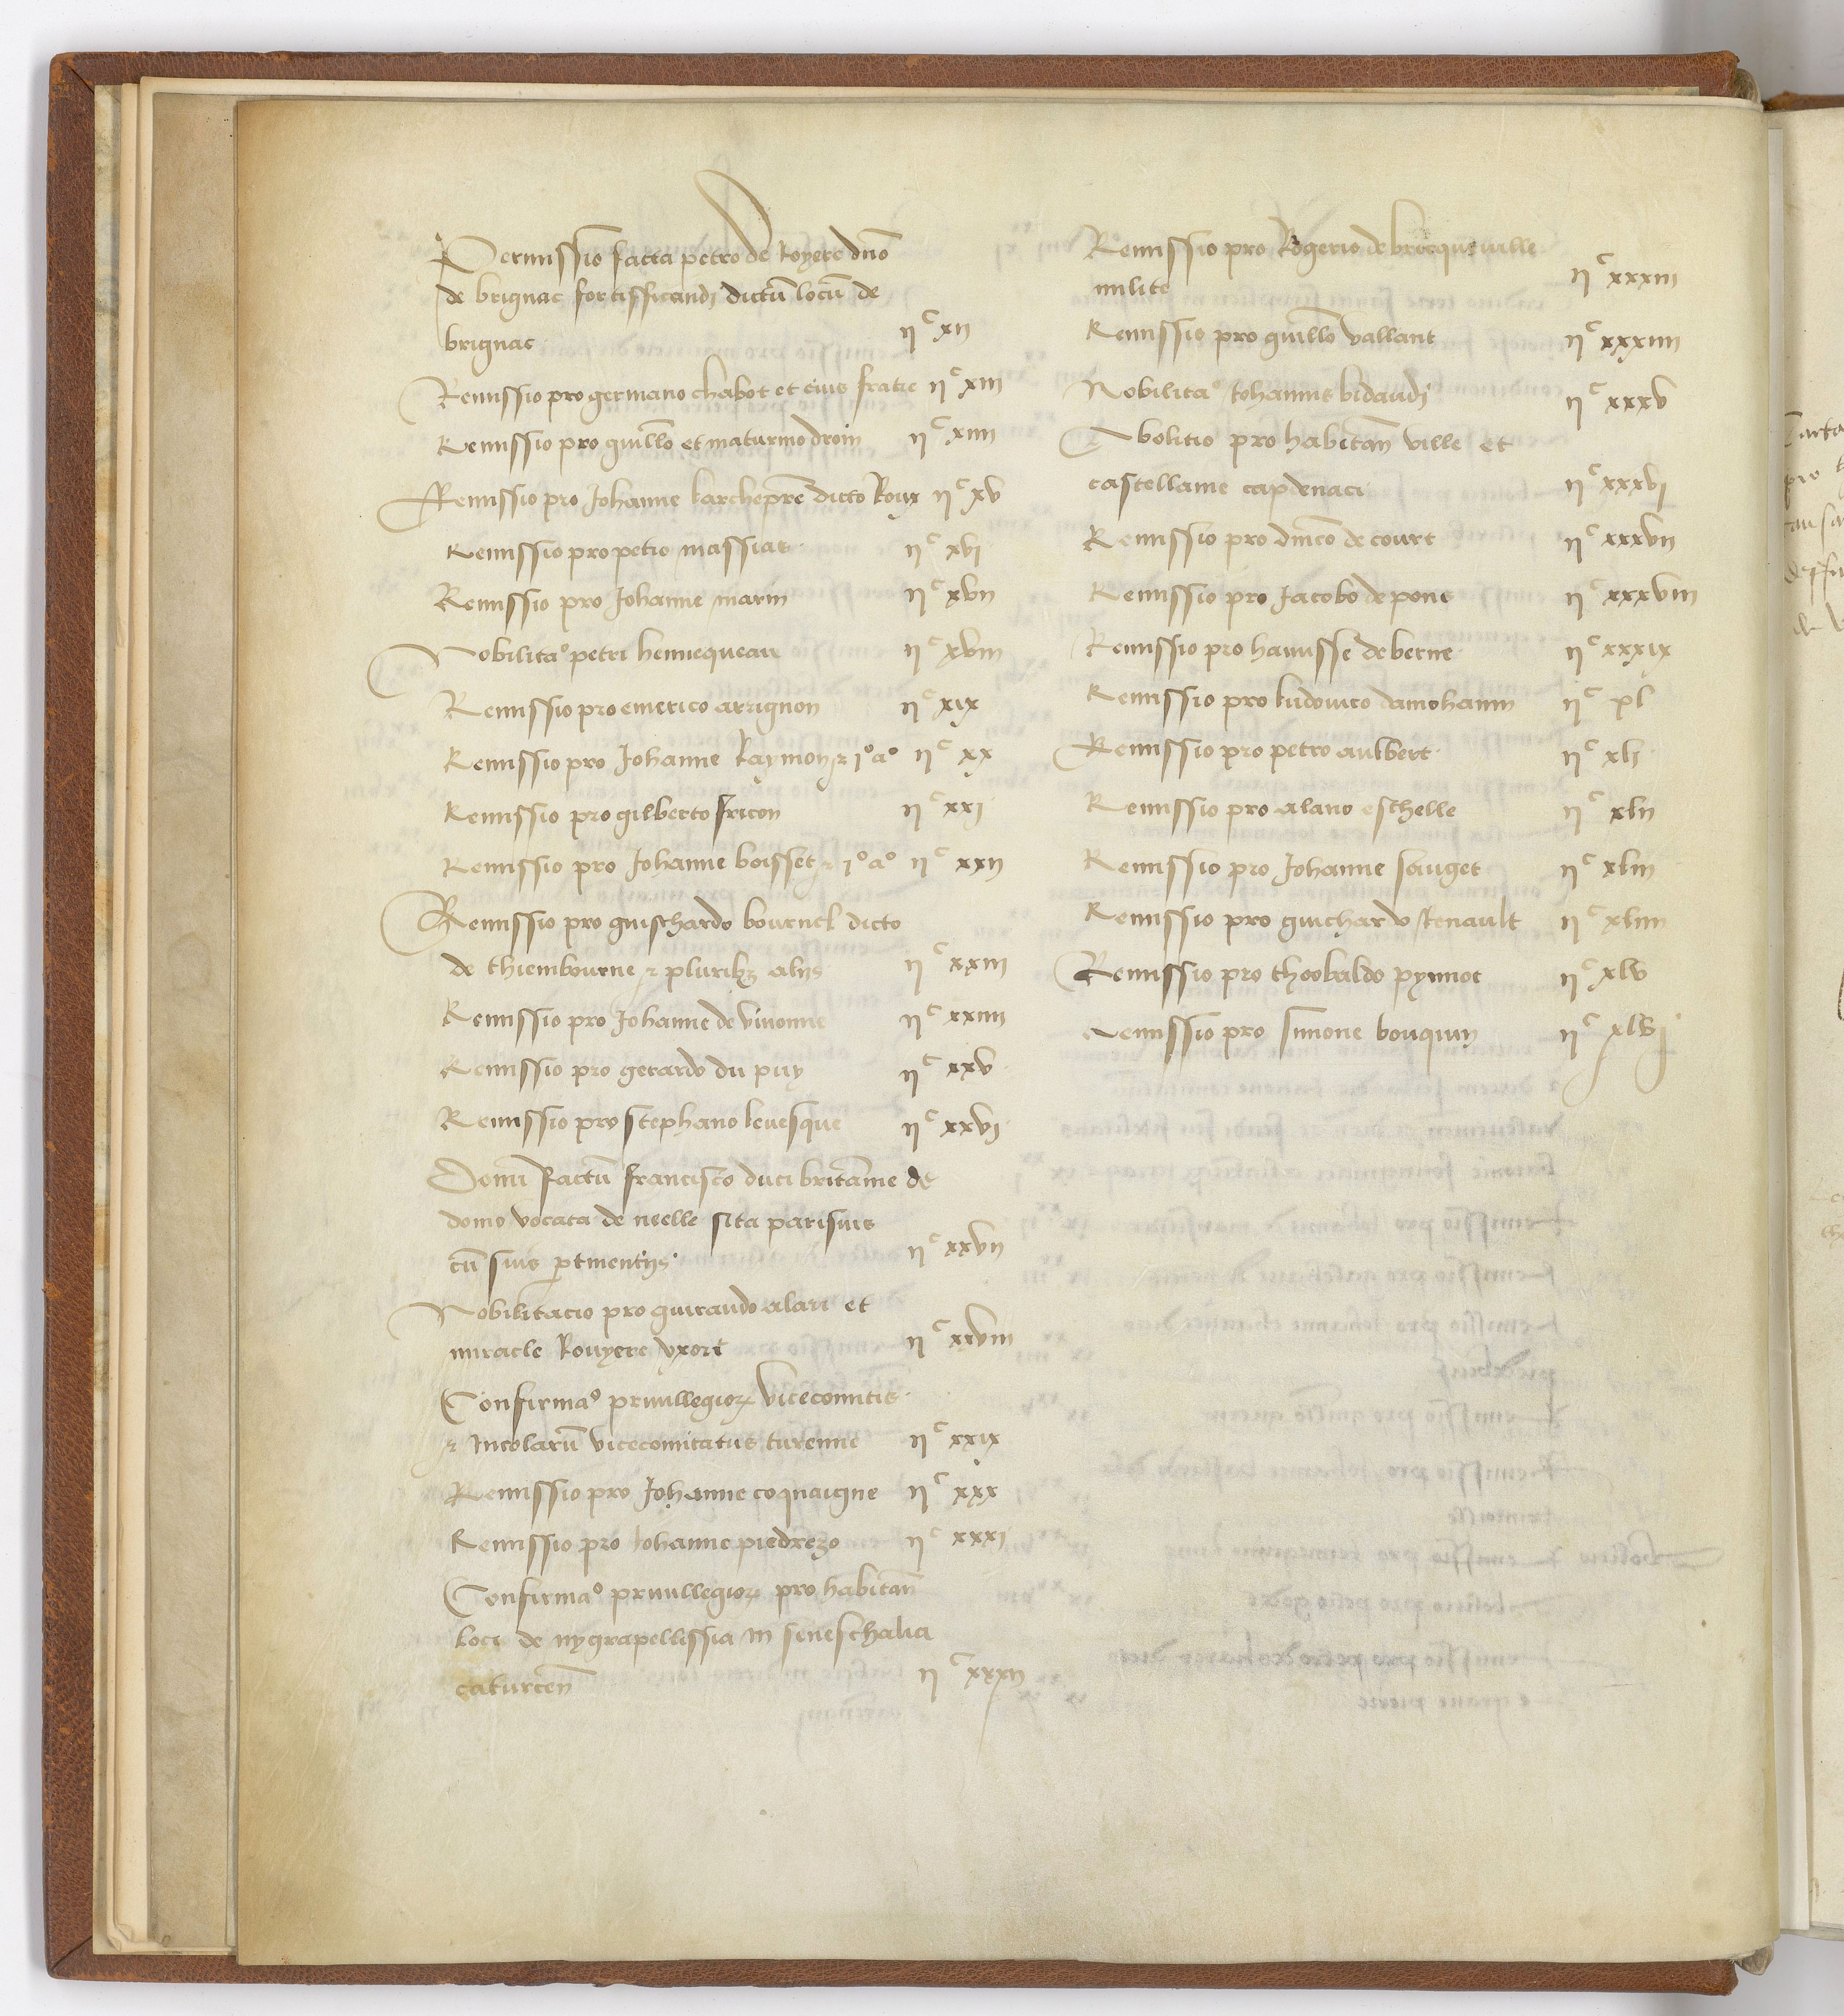 Permissio facta petro de Royere dno
de brignac fortifficandj dictu locu de
brignac IIc xII
Remissio pro germano chabot et eius fratre IIc xIII
Remissio pro guillo et maturino droin IIc xIIII
Remissio pro Johanne larcheprebre dicto Roux IIc xv
Remissio pro petro massias IIc xvj
Remissio pro Johanne marin IIc xvII
Nobilitao petri hennequeau IIc xvIII
Remissio pro emerico arrignon IIc xIx
Remissio pro Johanne Raymon et Io ao IIc xx
Remissio pro gilberto fricon IIc xxj
Remissio pro Johanne boisset et Io ao IIc xxII
Remissio pro guischardo bournel dicto
de thiembourne et pluribz alijs IIc xxIII
Remissio pro Johanne de vivonne IIc xxIIII
Remissio pro gerardo du puy IIc xxv
Remissio pro stephano levesque IIc xxvj
Donu factu francisco duci britanie de
domo vocata de neelle sita parisius
cu suis ptinentijs IIc xxvII
Nobilitacio pro guiraudo alari et
miracle Rouyere uxori IIc xxvIII
Confirmao privillegior vicecomitis
et Incolaru vicecomitatus turenne IIc xxIx
Remissio pro Johanne coquaigne IIc xxx
Remissio pro Johanne piedrezo IIc xxxj
Confirmao privillegior pro habitan
loci de nygrapellissia in seneschalia
caturcen IIc xxxII
Remissio pro Rogerio de bricqueville
milite IIc xxxIII
Remissio pro guillo vallant IIc xxxIIII
Nobilitao Johannis bidaudj IIc xxxv
Abolitio pro habitan ville et
castellanie capdenaci IIc xxxvj
Remissio pro dinco de court IIc xxxvII
Remissio pro Jacobo de pons IIc xxxvIII
Remissio pro hanisse de berne IIc xxxIx
Remissio pro ludovico damohann IIc xl
Remissio pro petro aubert IIc xlj
Remissio pro alano eschelle IIc xlII
Remissio pro Johanne sauget IIc xlIII
Remissio pro guichardo Renault IIc xlIIII
Remissio pro theobaldo pynnot IIc xlv
Remissio pro simone bouquin IIc xlvj